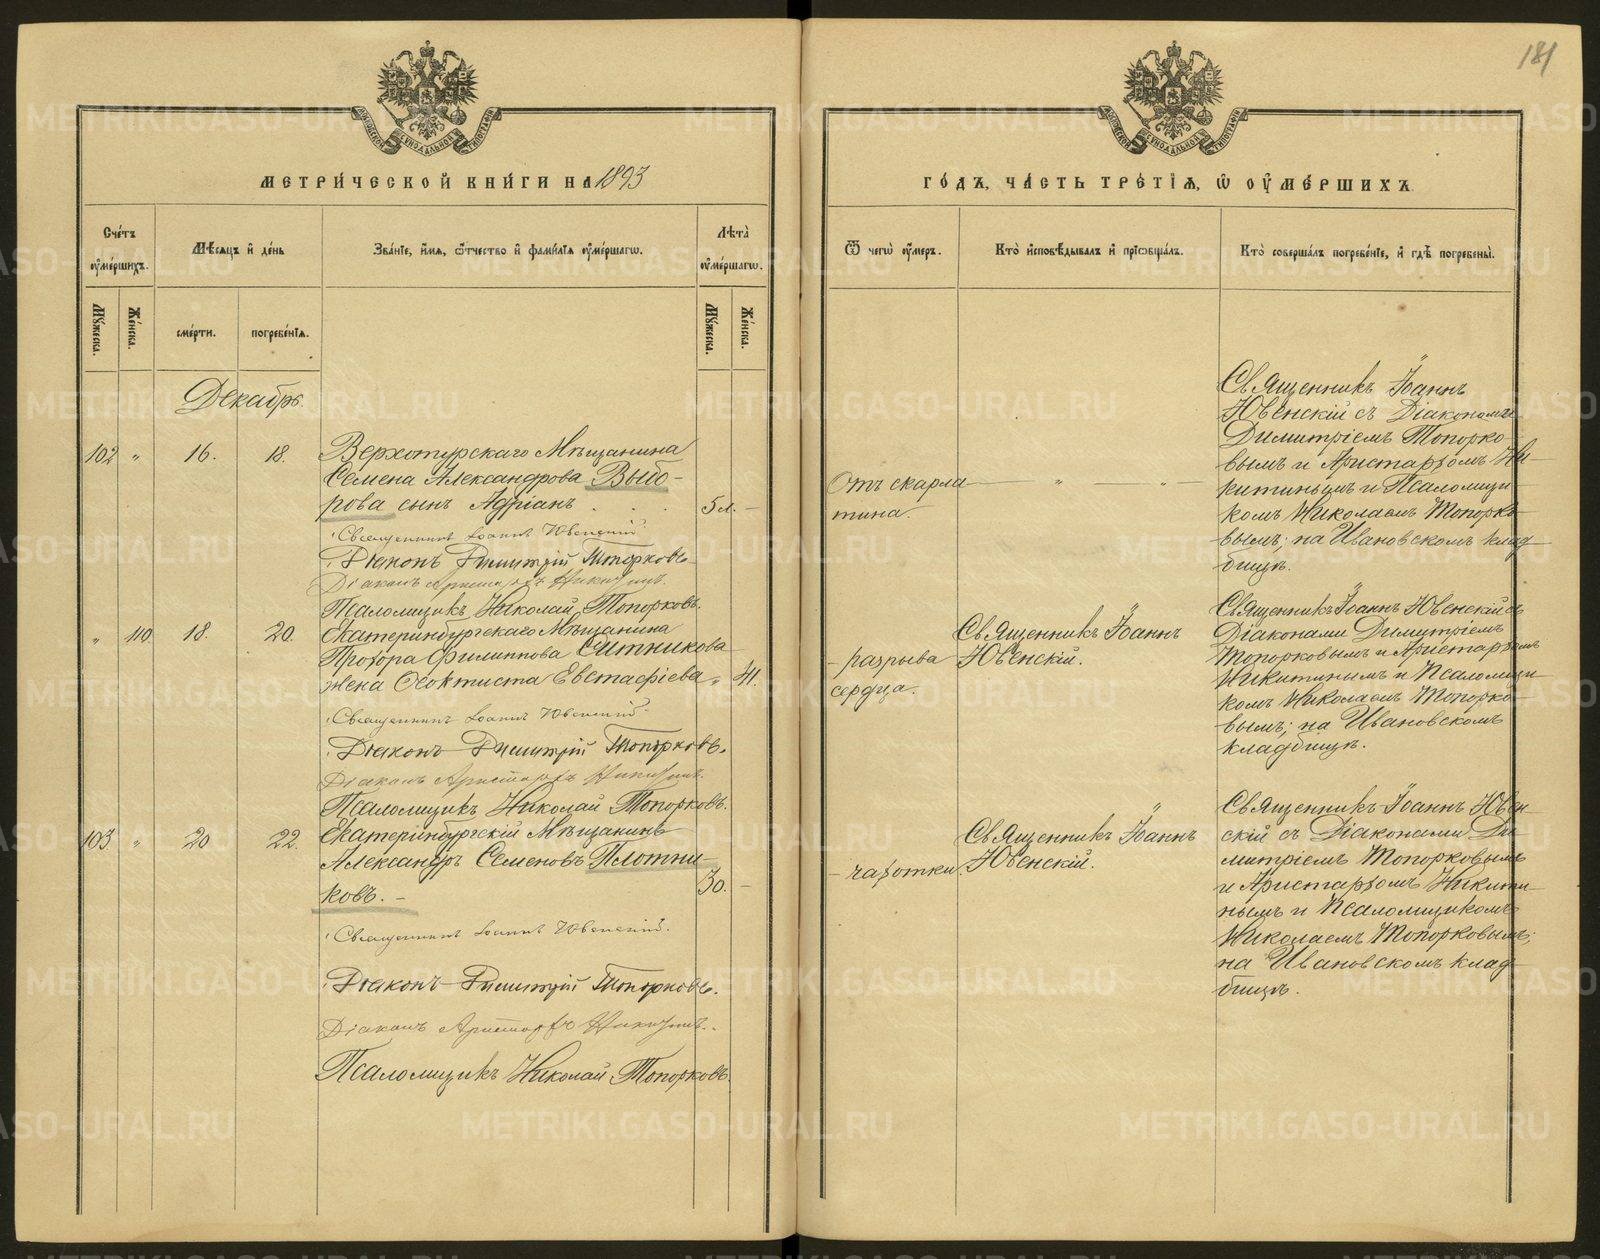 181
МЕТРИ́ЧЕСКОЙ КНИ́ГИ НА 1893
Сче́тъ ᲂумє́ршихъ.
Мѣ́сяцъ и҆ де́нь
Зва́нїе, и҆́мя, ѻ҆́тчество и҆ фами́лїя ᲂумє́ршагѡ.
Лѣта̀ ᲂумє́ршагѡ.
Му́жеска.
Же́нска.
сме́рти.
погребе́нїѧ.
Му́жеска.
Же́нска.
Декабрь.
102 " 16. 18.
Верхотурскаго Мѣщанина
Семена Александрова Выбо-
рова сынъ Адріанъ . . .
5 л. -
Священникъ Іоаннъ Ювенскій
Діаконъ Димитрій Топорковъ
Діаконъ Аристархъ Никитинъ.
Псаломщикъ Николай Топорковъ.
" 110 18. 20.
Екатеринбургскаго Мѣщанина
Прохора Филиппова Ситникова
жена Ѳеоктиста Евстафіева
" 41.
Священникъ Іоаннъ Ювенскій
Діаконъ Димитрій Топорковъ.
Діаконъ Аристархъ Никитинъ.
Псаломщикъ Николай Топорковъ.
103 " 20 22.
Екатеринбургскій Мѣщанинъ
Александръ Семеновъ Плотни-
ковъ. -
30. -
Священникъ Іоаннъ Ювенскій.
Діаконъ Димитрій Топорковъ.
Діаконъ Аристархъ Никитинъ.
Псаломщикъ Николай Топорковъ.
ГО́ДЪ, ЧА́СТЬ ТРЕ́ТЇѦ, Ѡ ОУМЕ́РШИХЪ
Ѿ чегѡ̀ ᲂу́меръ.
Кто̀ и҆сповѣ́дывалъ и҆ прїѡбща́лъ.
Кто̀ соверша́лъ погребе́нїе, и҆ гдѣ̀ погребены̀.
Отъ скарла-
тина.
" — "
Священникъ Іоаннъ
Ювенскій съ Діакономъ
Димитріемъ Топорко-
вымъ и Аристархомъ Ни-
китинымъ и Псаломщи-
комъ Николаемъ Топорко-
вымъ; на Ивановскомъ клад-
бищѣ.
- разрыва
сердца.
Священникъ Іоаннъ
Ювенскій.
Священникъ Іоаннъ Ювенскій съ
Діаконами Димитріемъ
Топорковымъ и Аристархомъ
Никитинымъ и Псаломщи-
комъ Николаемъ Топорко-
вымъ; на Ивановскомъ
кладбищѣ.
- чахотки.
Священникъ Іоаннъ
Ювенскій.
Священникъ Іоаннъ Ювен-
скій съ Діаконами Ди-
митріемъ Топорковымъ
и Аристархомъ Никити-
нымъ и Псаломщикомъ
Николаемъ Топорковымъ;
на Ивановскомъ клад-
бищѣ.
METRIKI.GASO-URAL.RU